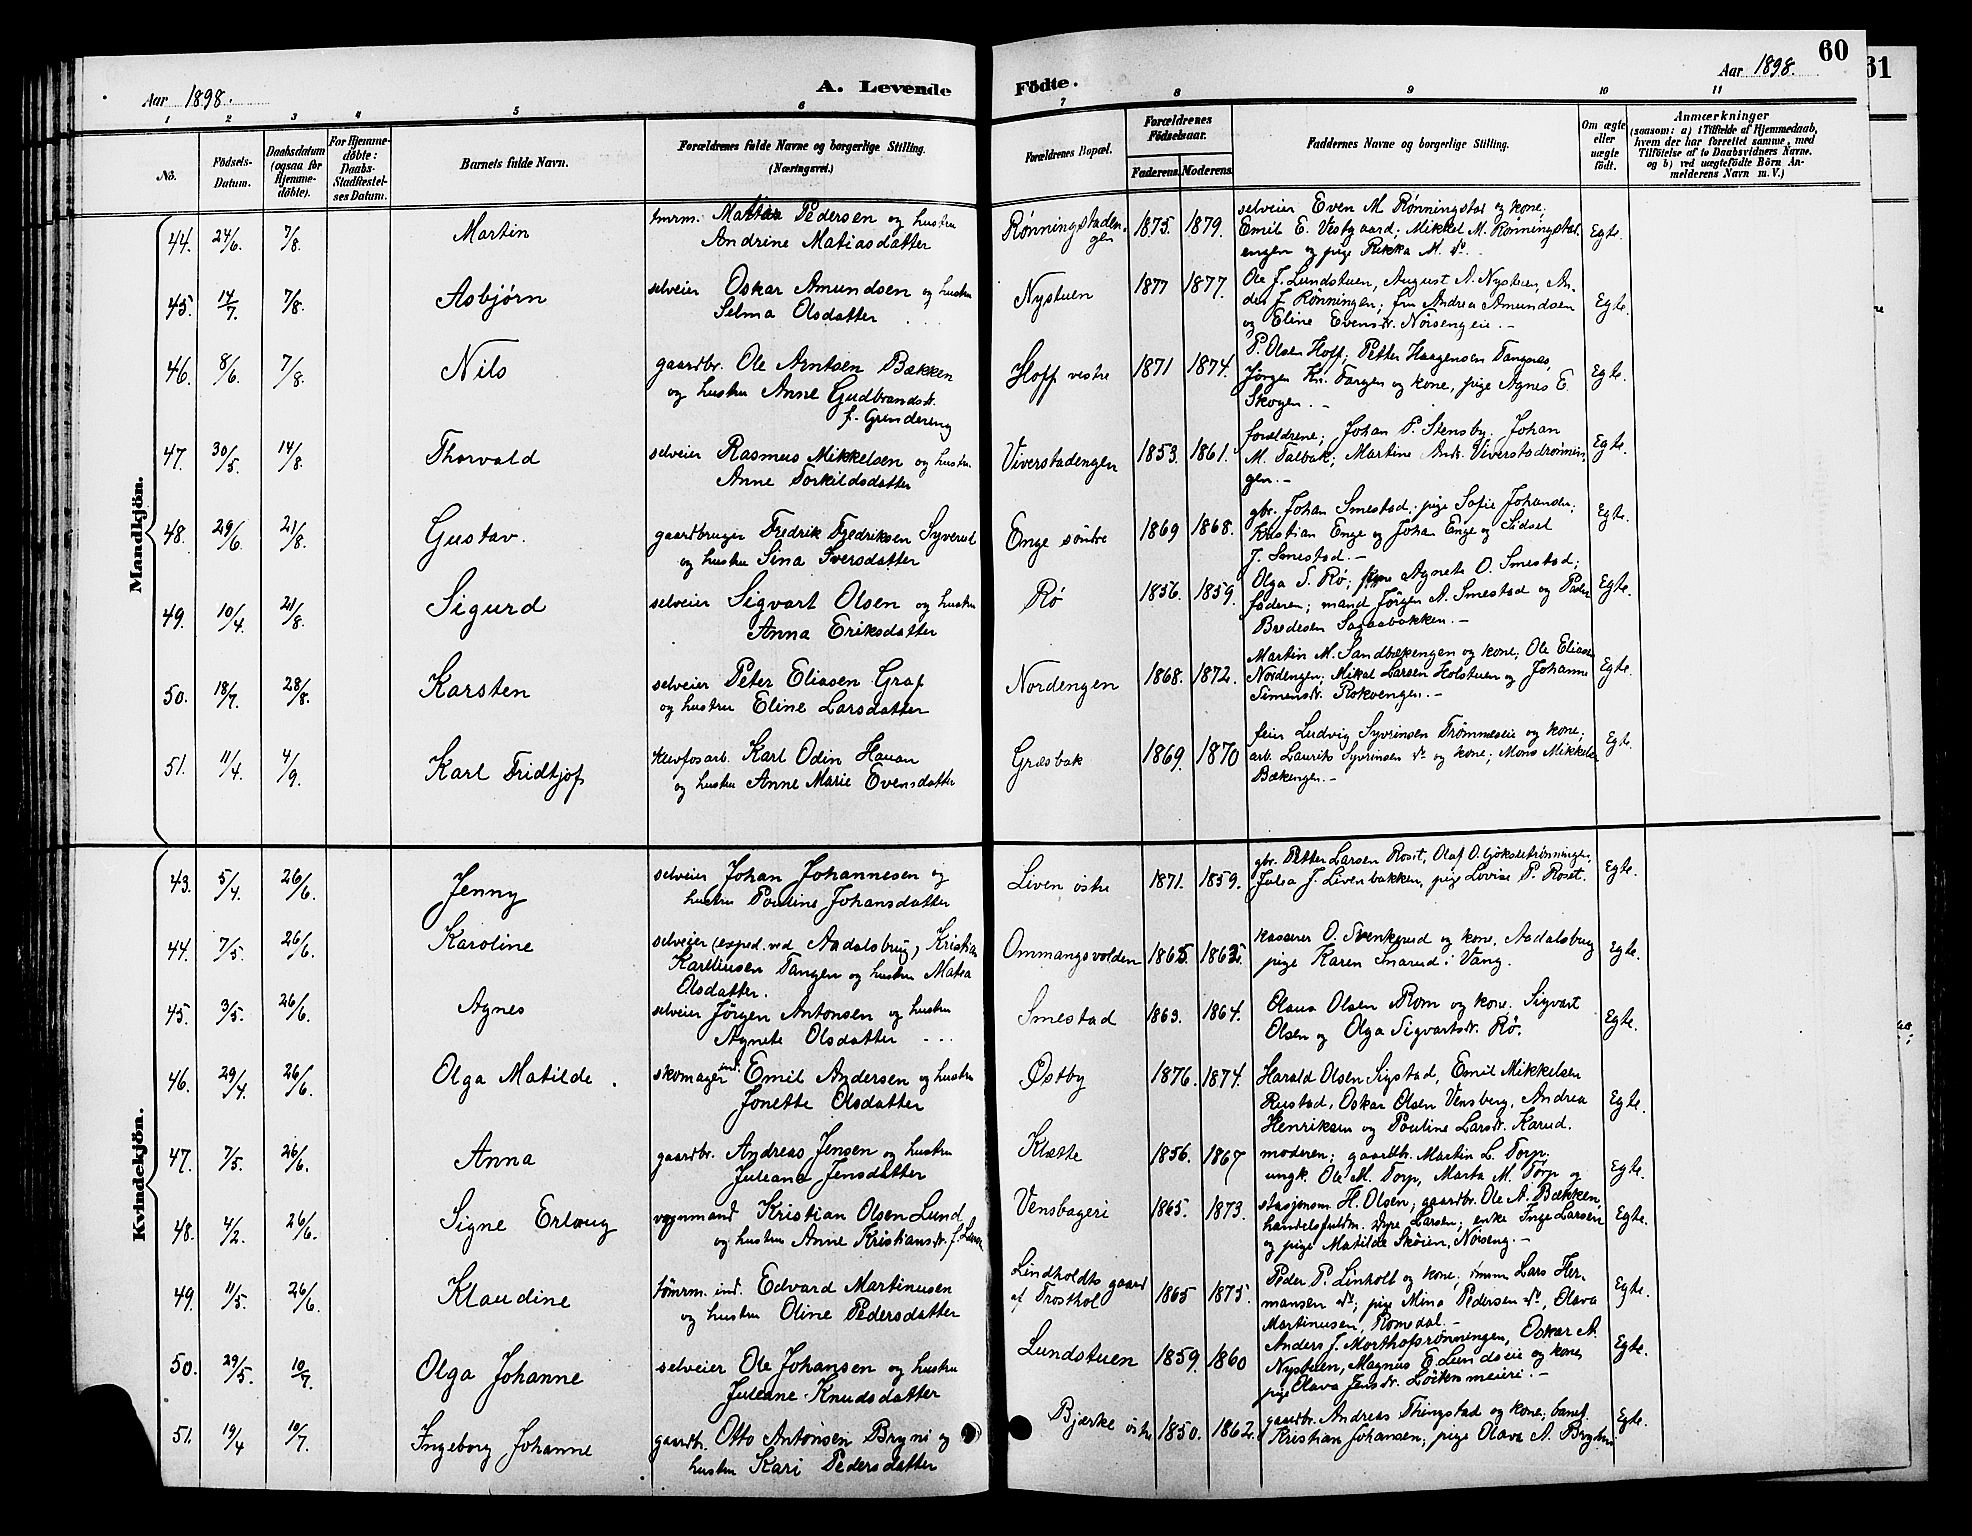 60
61
Aar 1898.
A. Levende Födte.
Aar 1898.
1 2 3 4 5 6 7 8 9 10 11
No.
Födsels-Datum.
Daabsdatum (ogsaa for Hjemme-døbte).
For Hjemme-døbte: Daabs-Stadfæstel-ses Datum.
Barnets fulde Navn.
Forældrenes fulde Navne og borgerlige Stilling. (Næringsvei.)
Forældrenes Bopæl.
Forældrenes Födselsaar.
Faderens. Moderens.
Faddernes Navne og borgerlige Stilling.
Om ægte eller uægte født.
Anmærkninger
(saasom: a) i Tilfælde af Hjemmedaab, hvem der har forrettet samme, med Tilföielse af to Daabsvidners Navne, og b) ved uægtefödte Börn An-melderens Navn m. V.)
Mandkjön.
44. 24/6. 7/8. Martin
tmrm. Pedersen og hustru
Andrine Matiasdatter
Rønningstaden-
gen
1875. 1879.
selveier Even M Rønningstad og kone;
Emil E. Vestgaard; Mikkel M. Rønningstad-
engen og pige Rikka M. do.
Egte.
45. 14/7. 7/8. Asbjørn
selveier Oskar Amundsen og hustru
Selma Olsdatter
Nystuen 1877 1877.
Ole J. Lundstuen, August A. Nystuen, An-
ders J. Rønningen; fru Andrea Amundsen
og Eline Evensdr. Nörsengeie. –
Egte.
46. 8/6. 7/8. Nils
gaardbr. Ole Arntsen Bakken
og hustru Anne Gudbrandsdr.
f. Grindereng
Hoff vestre 1871 1874.
P. Olsen Hoff; Petter Haagensen Tangnæs,
Jørgen Kr. Tangen og kone, pige Agnes E.
Skogen. –
Egte.
47. 30/5. 14/8. Thorvald
selveier Rasmus Mikkelsen og hustru
Anne Torkildsdatter
Viverstadengen 1853. 1861.
forældrene; Johan P. Stensby. Johan
M. Talbak; Martine Andr. Viverstadrønnin-
gen. –
Egte.
48. 29/6. 21/8. Gustav.
gaardbruger Fredrik Fredriksen Syverud
og hustru Sina Iversdatter
Enge søndre 1869 1868.
gbr. Johan Smestad; pige Sofie Johansdr.;
Kristian Enge og Johan Enge og Sidsel
J. Smestad. –
Egte.
49. 10/4. 21/8. Sigurd
selveier Sigvart Olsen og hustru
Anna Eriksdatter
Rø 1856. 1859.
Olga S. Rø; Agnete O. Smestad;
faderen; mand Jörgen A. Smestad og Peder
Bredesen Sagaabakken. –
Egte.
50. 18/7. 28/8. Karsten
selveier Peter Eliasen Graf
og hustru Eline Larsdatter
Nordengen 1868. 1872.
Martin M. Sandbækengen og kone; Ole Eliasen
Nordengen; Mikal Larsen Holstuen og Johanne
Simensdr. Rokvengen. –
Egte.
51. 11/4. 4/9. Karl Fridtjof
klevfosarb. Karl Odin Hauan
og hustru Anne Marie Evensdatter
Græsbak 1869. 1870
feier Ludvig Syvrinsen Trömmeseie og kone;
arb. Laurits Syvrinsen do. og kone; Mons Mikkelsen
Bækengen. –
Egte.
Kvindekjön.
43. 5/4. 26/6. Jenny
selveier Johan Johannesen og
hustru Pouline Johansdatter
Liven östre 1871. 1859.
gbr. Petter Larsen Roset, Olaf O. Gjøksletrønningen,
Julia J. Livenbakken, pige Lovise P. Roset.
Egte.
44. 7/5. 26/6. Karoline
selveier (exped. ved Aadalsbrug) Kristian
Karelinsen Tangen og hustru Matea
Olsdatter.
Ommangsvolden 1865 1862.
kasserer O. Svenkerud og kone, Aadalsbrug
pige Karen Snarud i Vang.
Egte.
45. 3/5. 26/6. Agnes
selveier Jörgen Antonsen og hustru
Agnete Olsdatter
Smestad 1863. 1864.
Olaus Olsen Rom og kone. Sigvart
Olsen og Olga Sigvartsdr. Rø.
Egte.
46. 29/4. 26/6. Olga Matilde.
skomager ind. Emil Andersen og hustru
Jonette Olsdatter
Østby 1876. 1874.
Harald Olsen Sigstad, Emil Mikkelsen
Rustad, Oskar Olsen Vensberg, Andrea
Henriksen og Pouline Larsdr. Karud.
Egte.
47. 7/5. 26/6. Anna
gaardbr. Andreas Jensen og hustru
Juleane Jensdatter
Klætte 1856. 1867
moderen; gaardbr. Martin L. Torp;
ungk. Ole M. Torp, Marta M. Torp og
Egte.
48. 4/2. 26/6. Signe Erloug
vognmand Kristian Olsen Lund
og hustru Anne Kristiansdr. f.
Vensbageri 1865. 1873.
stasjonsm H. Olsen; gaardbr. Ole A. Bækken,
handelsfuldm. Dyre Larsen; enke Inge Larsen
og pige Matilde Skøien, Nörseng. –
Egte.
49. 11/5. 26/6. Klaudine
tömrm. ind. Edvard Martinusen
og hustru Oline Pedersdatter
Lindholdts gaard
af Frosthol
1865 1875.
Peder P. Linholt og kone; Lars Her-
mansen do; pige Mina Pedersen do, Olava
Martinusen, Romedal. –
Egte.
50. 29/5. 10/7. Olga Johanne
selveier Ole Johansen og hustru
Juleane Knudsdatter
Lundstuen 1859. 1860
Anders J. Morthofsrønningen, Oskar A.
Nystuen, Magnus E. Lundseie og kone,
pige Olava Jensdr. Löiten meieri. –
Egte.
51. 19/4. 10/7. Ingeborg Johanne
gaardbr. Otto Antonsen Bryni og
hustru Kari Pedersdatter
Bjærke östre 1850. 1862.
gaardbr. Andreas Thingstad og kone; banef.
Kristian Johansen; pige Olava A.
Egte.